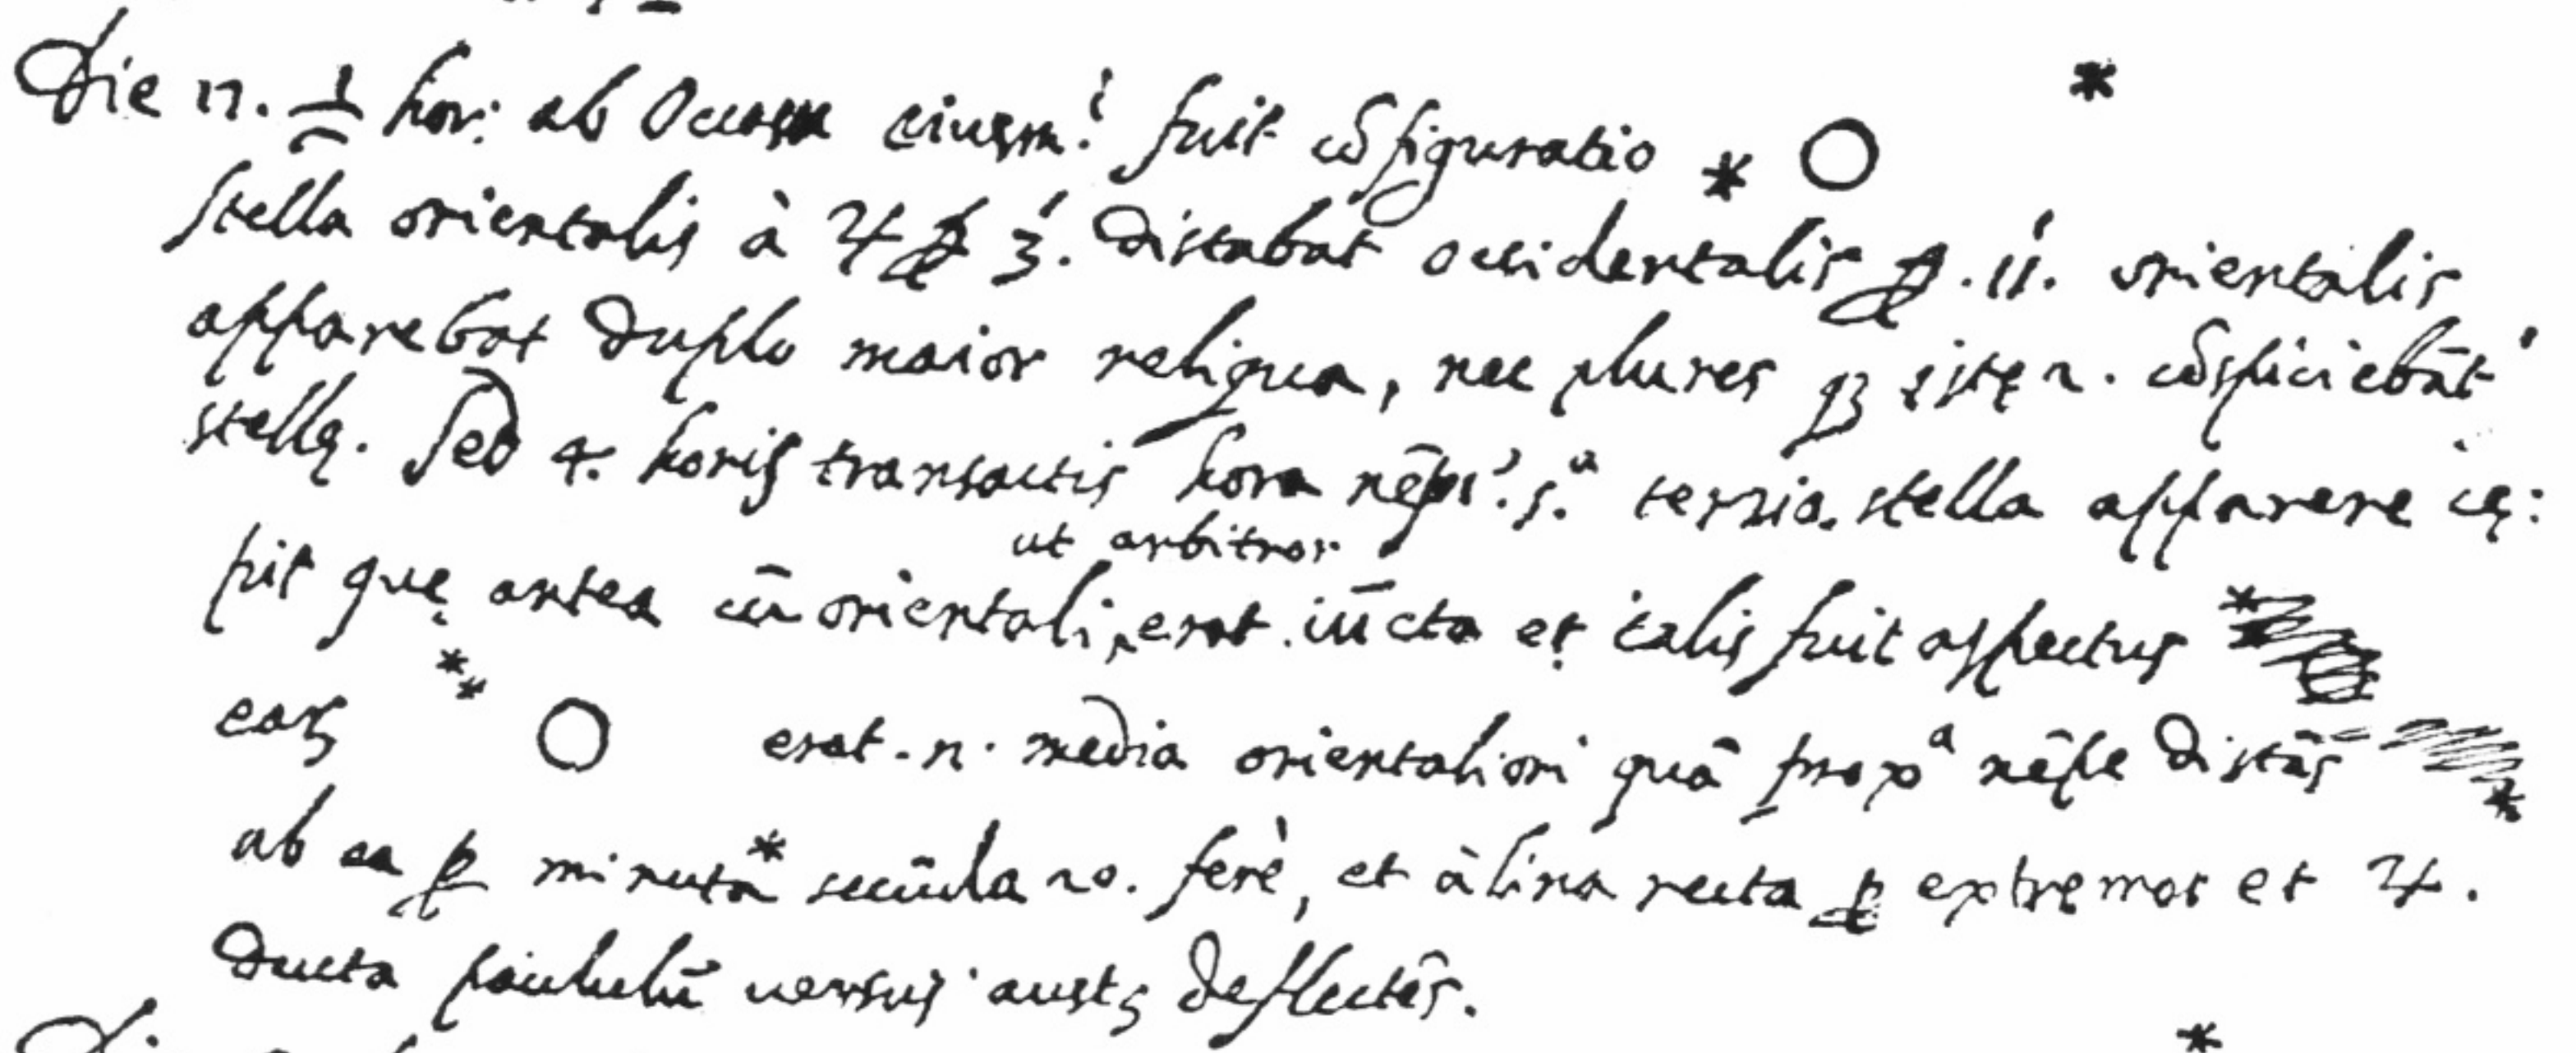 Die 17. 1/2 hor: ab Occasu eiusm.i fuit cōfiguratio * O *
stella orientalis à ♃ p 3'. distabat occidentalis p. 11'. orientalis
apparebat duplo maior reliqua, nec plures qȝ istę 2. cōspiciebāt'
stellę. Sed 4. horis transactis hora nēpe. 5.a tertia. stella apparere cę:
pit quę antea cū orientali, ut arbitror erat iūcta et talis fuit aspectus
earȝ ** O erat. n. media orientaliori quā propa nēpe distās
ab ea p minuta * secūda 20. ferè, et à linea recta p extremas et ♃.
ducta paululū versus austȝ deflectēs.